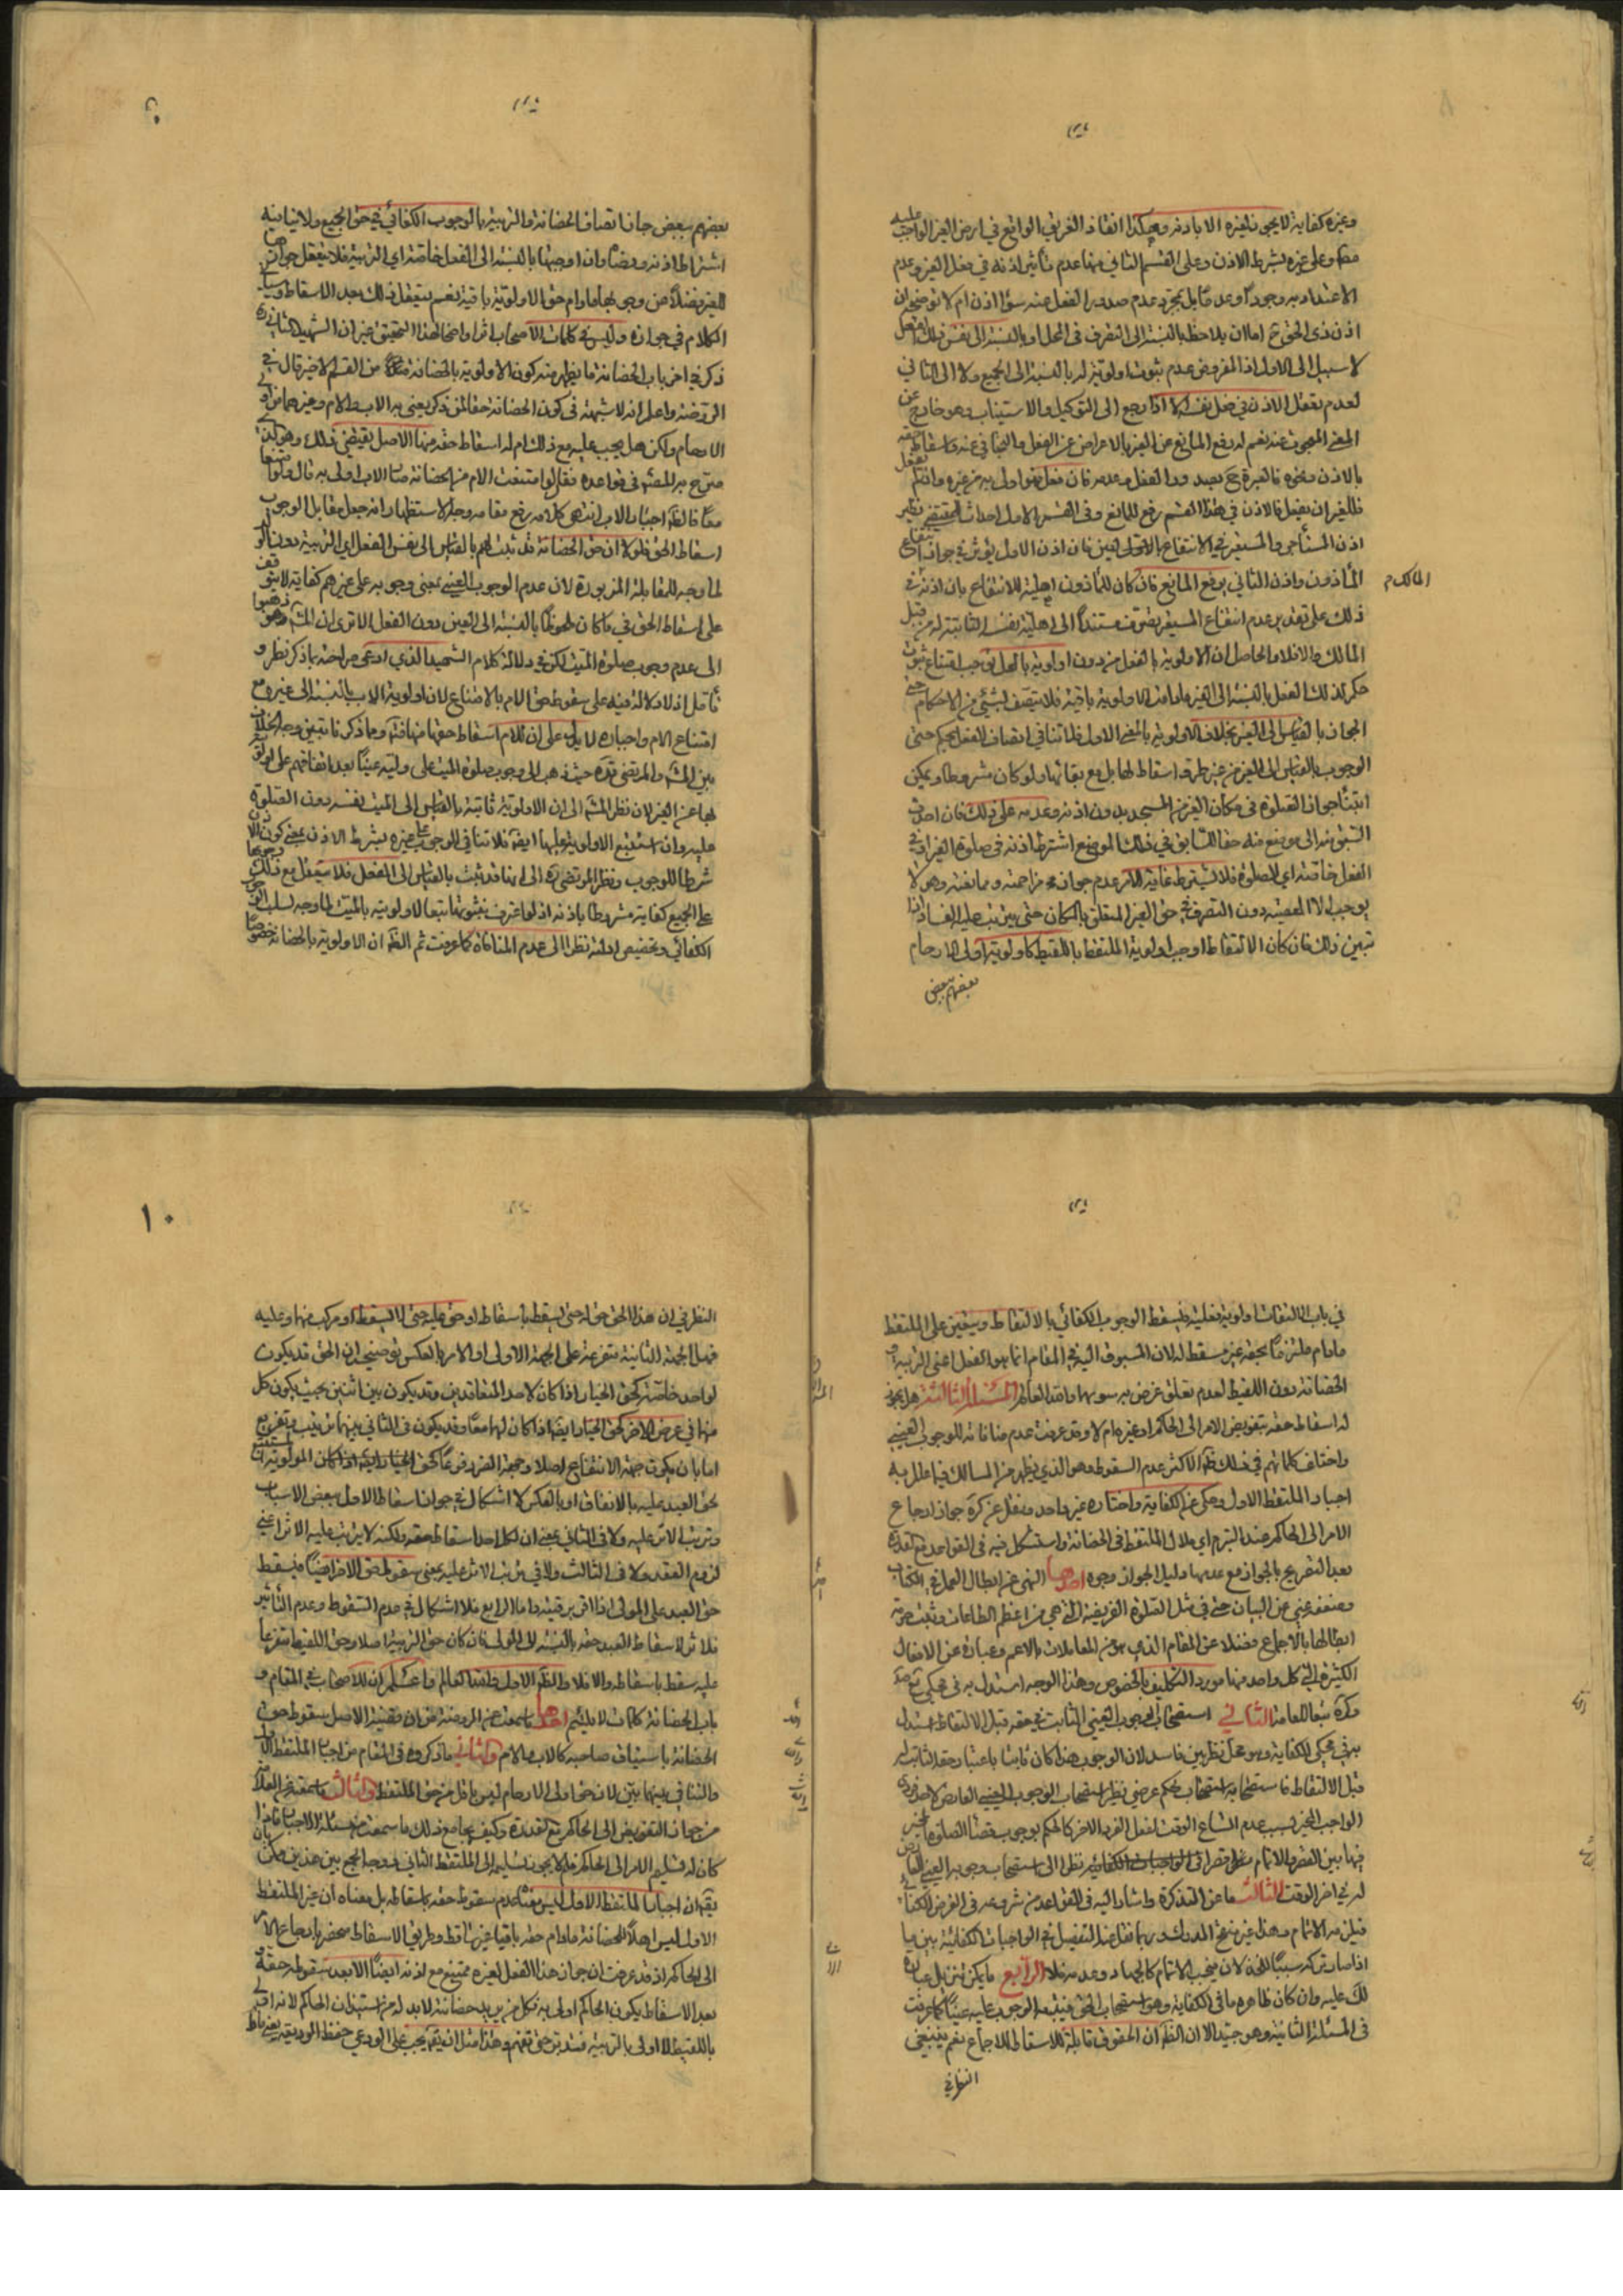 وغيره كفاية لا يجوز لغيره الا باذنه وهكذا انقاذ الغريق الواقع في ارض الغير الواجب عليه
وعلى غيره بشرط الاذن وعلى القسم الثاني منها عدم تأثير اذنه في فعل الغير وعدم
الاعتداد به وجودا وعدما بل مجرد عدم صدور الفعل منه سواء اذن ام لا توضيحه ان
اذن ذي الحق اما ان يلاحظ بالنسبة الى التصرف في المحل او بالنسبة الى نفس ذلك الفعل
لا سبيل الى الاول اذ المفروض عدم ثبوت اولويته له بالنسبة الى الجميع ولا الى الثاني
لعدم تعقل الاذن في فعل نفسه الا اذا رجع الى التوكيل والاستيناب وهو خارج عن
المعنى المبحوث عنه نعم له رفع المانع عن الغير بالاعراض عن الفعل والتجافي عنه واسقاط حقه
بالاذن ونحوه فالعبرة ح بصدور الفعل وعدمه فان فعل فهو اولى به من غيره وان لم يفعل
فللغير ان يفعل فالاذن في هذا القسم رفع للمانع وفي القسم الاول احداث للمقتضي نظير
اذن المستأجر والمستعير في الانتفاع بالاولى لعين فان اذن الاول يؤثر في جواز انتفاع
المأذون واذن الثاني يرفع المانع فان كان للمأذون اهلية للانتفاع بان اذنه في المالك
ذلك على تقدير عدم انتفاع المستعير يتصرف مستندا الى اهلية نفسه الثابتة له من قبل
المالك والا فلا والحاصل ان الاولوية بالفعل من دون اولوية بالمحل توجب امتناع ثبوت
حكم لذلك الفعل بالنسبة الى الغير ما دامت الاولوية باقية فلا يتصف بشيء من الاحكام حتى
الجواز بالقياس الى الغير بخلاف الاولوية بالمعنى الاول فلا تنافي اتصاف الفعل بحكم حتى
الوجوب بالقياس الى الغير من غير طرو اسقاط لها بل مع بقائها ولو كان مشروطا ويمكن
ابتناء جواز الصلوة في مكان الغير من المسجد بدون اذنه وعدمه على ذلك فان احدث
السبق منه الى موضع منه حقا للسابق في ذلك الموضع اشترط اذنه في صلوة الغير
الفعل خاصة اي الصلوة فلا يشترط غاية الامر عدم جواز مزاحمته وممانعته وهو لا
يوجب الا المعصية دون التصرف في حق الغير المتعلق بالمكان حتى يترتب عليه الفساد اذا
تبين ذلك فان كان الالتقاط اوجب اولوية الملتقط باللقيط كاولوية اولى الارحام
بعضهم ببعض
بعضهم ببعض جاز اتصاف الحضانة والتربية بالوجوب الكفائي في حق الجميع ولا ينافيه
اشتراط اذنه ورضاه وان اوجبها بالنسبة الى الفعل خاصة اي التربية فلا يتعقل جوازها
للغير فضلا عن وجوبها ما دام حق الاولوية باقية نعم يتعقل ذلك بعد الاسقاط وسيأتي
الكلام في جوازه وليس في كلمات الاصحاب اثر واضح لهذا التحقيق غير ان الشهيد الثاني ره
ذكر في اخر باب الحضانة ما يظهر منه كون الاولوية بالحضانة من القسم الاخير قال في
الروضة واعلم انه لا شبهة في كون الحضانة حقا لمن ذكر يعني به الاب والام وغيرهما من اولي
الارحام ولكن هل يجب عليه مع ذلك ام له اسقاط حقه منها الاصل يقتضي ذلك وهو الذي
صرح به الشهيد في قواعده فقال لو امتنعت الام من الحضانة صار الاب اولى به قال ولو امتنعا
معا فالظ اجبار الاب انتهى كلامه رفع مقامه وجه الاستظهار انه جعل مقابل الوجوب
اسقاط الحق فلولا ان حق الحضانة قد ثبت لهم بالقياس الى نفس الفعل اي التربية دون الولد
لما وجه للمقابلة المزبورة لان عدم الوجوب العيني بمعنى وجوبه على غيرهم كفاية لا يتوقف
على اسقاط الحق في ما كان ملحوظا بالنسبة الى العين دون الفعل الا ترى ان المش ذهبوا
الى عدم وجوب صلوة الميت لكن في دلالة كلام الشهيد الذي ادعى صراحته بما ذكر نظر و
تأمل اذ لا دلالة فيه على سقوط حق الام بالامتناع لان اولوية الاب بالنسبة الى غيره مع
امتناع الام واجباره لا يدل على ان للام اسقاط حقها منها فت وما ذكرنا تبين وجه الخلاف
بين المش والمرتضى قده حيث ذهب الى وجوب صلوة الميت على وليه عينا بعد اتفاقهم على اولويته
بها عن الغير لان نظر المش الى ان الاولوية ثابتة بالقياس الى الميت نفسه دون الصلوة
عليه وان استتبع الاولوية عليها ايضا فلا تنافي الوجوب على غيره بشرط الاذن بمعنى كون الاذن
شرطا للوجوب ونظر المرتضى ره الى انها قد تثبت بالقياس الى الفعل فلا يتعقل مع ذلك وجوبها
على الجميع كفاية مشروطا باذنه اذ لو اعترف بثبوتها تبعا لاولويته بالميت لما وجه لسلب الوجوب
الكفائي وتخصيص ادلته نظرا الى عدم المنافاة كما عرفت ثم الظ ان الاولوية بالحضانة خصوصا
في باب الالتقاط اولوية فعلية فيسقط الوجوب الكفائي بالالتقاط ويتعين على الملتقط
ما دام ملتزما بحقه غير مسقط له لان المسبوق اليه في المقام انما هو الفعل اعني التربية و
الحضانة دون اللقيط لعدم تعلق غرض به سويها والله العالم المسئلة الثالثة هل يجوز
له اسقاط حقه بتفويض الامر الى الحاكم او غيره ام لا وقد عرفت عدم منافاته للوجوب العيني
واختلف كلماتهم في ذلك ظ الاكثر عدم السقوط وهو الذي يظهر من المسالك فيما علل به
اجبار الملتقط الاول وحكي عن الكفاية واختاره غير واحد ونقل عن كرة جواز ارجاع
الامر الى الحاكم عند التبرم اي ملال الملتقط في الحضانة واستشكل فيه في القواعد مع تعذره
بعد التفريع بالجواز مع عدمها دليل الجواز وجوه احدها النهي عن ابطال العمل في الكتاب
وضعفه غني عن البيان حتى في مثل الصلوة الفريضة التي هي من اعظم الطاعات وثبت حرمة
ابطالها بالاجماع فضلا عن المقام الذي هو من المعاملات بالاعم وعبارة عن الافعال
الكثيرة التي كل واحد منها مورد التكليف بالخصوص وهذا الوجه استدل به في محكي مع صد
وكرة تبعا للعامة الثاني استصحاب الوجوب العيني الثابت في حقه قبل الالتقاط استدل
به في محكي الكفاية وهو محل نظر بين فاسد لان الوجوب هذا كان ثابتا باعتبار حقه الثابت له
قبل الالتقاط فاستصحابه استصحاب لحكم عرضي نظير استصحاب الوجوب العيني العارض لاحد فردي
الواجب المخير بسبب عدم اتساع الوقت لفعل الفرد الاخر كالحكم بوجوب قضاء الصلوة المخير
فيها بين القصر والاتمام قصرا نظرا الى استصحاب وجوبه العيني العارض
له في اخر الوقت الثالث ما عن التذكرة واشار اليه في القواعد من شروعه في الفرض الكفائي
فيلزمه الاتمام وهذا غير متضح المدرك وربما نقل عنه التفصيل في الواجبات الكفائية بين ما
اذا صار تركه سببا للخذلان فيجب الاتمام كالجهاد وعدمه فلا الرابع ما يمكن تنزيل عبارة
لك عليه وان كان ظاهره ما في الكفاية وهو استصحاب الحق فيتبعه الوجوب عليه عينا كما عرفت
في المسئلة الثانية وهو جيد الا ان الظ ان الحقوق قابلة للاسقاط للاجماع نعم ينبغي
النظر في
النظر في ان هذا الحق حق له حتى يسقط باسقاطه او حق عليه حتى لا يسقط او مركب منهما وعليه
فهل الجهة الثانية متفرعة على الجهة الاولى او الامر بالعكس توضيحه ان الحق قد يكون
لواحد خاصة كحق الخيار اذا كان لاحد المتعاقدين وقد يكون بين اثنين بحيث يكون كل
منهما في عرض الاخر كحق الخيار ايضا اذا كان لهما معا وقد يكون في الثاني بينهما ترتب وتفرع
اما بان يكون جهة الانتفاع اصلا وجهة الضرر فرعا كحق
بحق العبد عليه بالانفاق او بالعكس لا اشكال في جواز اسقاط الاول ببعض الاسباب
وترتب الاثر عليه ولا في الثاني بمعنى ان لكل احد اسقاط حقه ولكنه لا يترتب عليه الاثر اعني
لزوم العقد ولا في الثالث ولا في ترتب الاثر عليه بمعنى سقوط حق الاخر ايضا فيسقط
حق العبد على المولى اذا اتى برقبته واما الرابع فلا اشكال في عدم السقوط وعدم التأثير
فلا اثر لاسقاط العبد حقه بالنسبة الى المولى فان كان حق التربية اصلا وحق اللقيط متفرعا
عليه سقط باسقاطه والا فلا والظ الاول والله العالم واعلم ان للاصحاب في المقام و
باب الحضانة كلمات لا يلتئم احدها ما سمعت عن الروضة من ان قضية الاصل سقوط حق
الحضانة باستيناف صاحبه كالاب والام والثاني ما ذكروه في المقام من اجبار الملتقط الاول
والتنافي بينهما بين لان حق اولى الارحام ليس باقل من حق الملتقط والثالث ما سمعت عن العلامة
من جواز التفويض الى الحاكم مع تعذره وكيف يجامع ذلك ما سمعت من مسئلة الاجبار فان
كان له تسليم الامر الى الحاكم فلم لا يجوز تسليمه الى الملتقط الثاني ووجه الجمع بين هذين يمكن بان
يقال ان اجبار الملتقط الاول ليس معناه عدم سقوط حقه باسقاطه بل معناه ان غير الملتقط
الاول ليس اهلا للحضانة ما دام حقه باقيا غير ساقط وطريق الاسقاط منحصر بارجاع الامر
الى الحاكم اذ قد عرفت ان جواز هذا الفعل لغيره ممتنع مع اذنه ايضا الا بعد سقوط حقه و
بعد الاسقاط يكون الحاكم اولى به فكل من يريد حضانته لا بد له من استيذان الحاكم لانه اولى
باللقيط لا اولى بالتربية فتدبر حتى تفهم وهذا مثل ان يقال يجب على الودعي حفظ الوديعة يعني ما
١٠